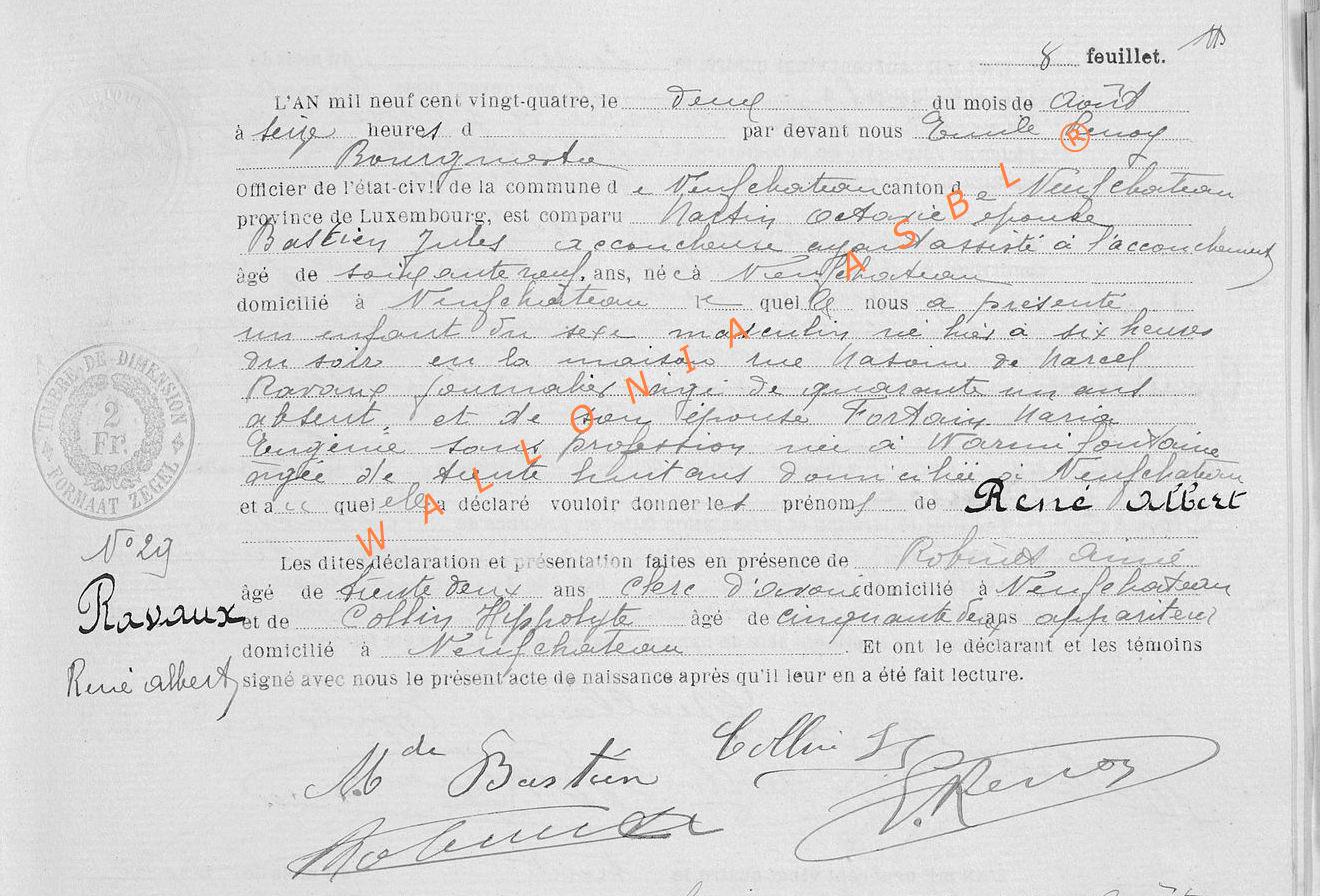 8 feuillet.
L'AN mil neuf cent vingt-quatre, le deux du mois de Août
à seize heures d par devant nous Emile Renoy
Bourgmestre
Officier de l'état-civil de la commune de Neufchateau canton de Neufchateau
province de Luxembourg, est comparu Martin Octavie épouse
Bastien Jules accoucheuse ayant assisté à l'accouchement
âgé de soixante neuf ans, née à Neufchateau
domicilié à Neufchâteau quelle nous a présenté
un enfant du sexe masculin né hier à six heures
du soir en la maison rue de Marcel
Ravaux journalier âgé de quarante un ans
absent, et de son épouse Fortain Maria
Eugénie sans profession née à Warmifontaine
âgée de trente huit ans domiciliée à Neufchateau
et a quel elle a déclaré vouloir donner les prénoms de René Albert
Les dites déclaration et présentation faites en présence de Robinet Aimé
âgé de trente deux ans clerc d'avoué domicilié à Neufchateau
et de Collin Hippolyte âgé de cinquante deux ans appariteur
domicilié à Neufchateau. Et ont le déclarant et les témoins
signé avec nous le présent acte de naissance après qu'il leur en a été fait lecture.
TIMBRE DE DIMENSION
2
Fr.
FORMAAT ZEGEL
N° 29
Ravaux
René albert
Mde Bastien
Collin
E. Renoy
WALLONIA ASBL ®